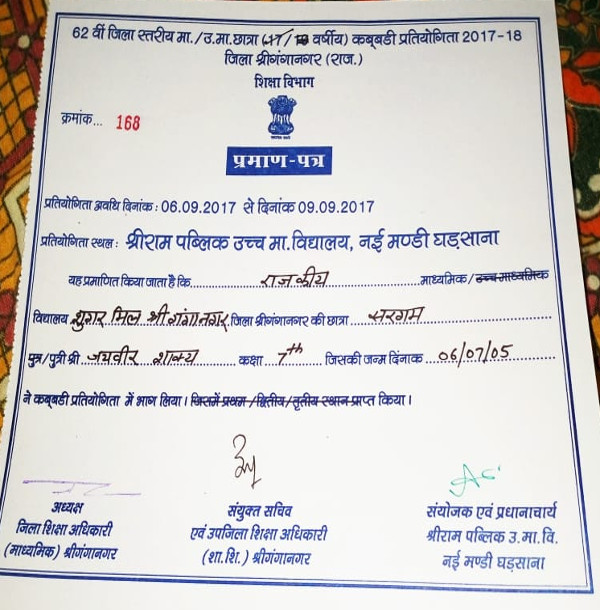 62 वीं जिला स्तरीय मा./उ.मा.छात्रा (17/19 वर्षीय) कबड्डी प्रतियोगिता 2017-18
जिला श्रीगंगानगर (राज.)
शिक्षा विभाग
क्रमांक... 168
प्रमाण-पत्र
प्रतियोगिता अवधि दिनांक : 06.09.2017 से दिनांक 09.09.2017
प्रतियोगिता स्थल : श्रीराम पब्लिक उच्च मा.विद्यालय, नई मण्डी घड़साना
यह प्रमाणित किया जाता है कि राजकीय माध्यमिक/उच्च माध्यमिक
विद्यालय शुगर मिल श्री गंगानगर जिला श्रीगंगानगर की छात्रा सरगम
पुत्र/पुत्री श्री जयवीर शाक्य कक्षा 7th जिसकी जन्म दिनांक 06/07/05
ने कबड्डी प्रतियोगिता में भाग लिया। जिसमें प्रथम/द्वितीय/तृतीय स्थान प्राप्त किया।
अध्यक्ष
जिला शिक्षा अधिकारी
(माध्यमिक) श्रीगंगानगर
संयुक्त सचिव
एवं उपजिला शिक्षा अधिकारी
(शा.शि.) श्रीगंगानगर
संयोजक एवं प्रधानाचार्य
श्रीराम पब्लिक उ.मा.वि.
नई मण्डी घड़साना